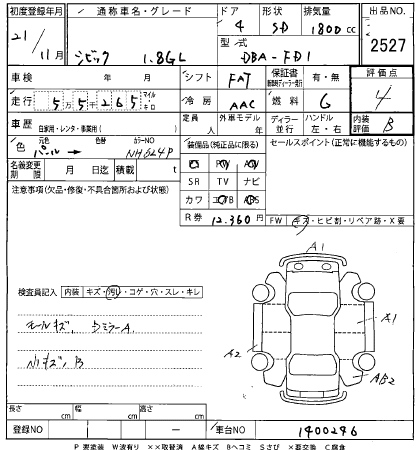 初度登録年月 通称車名・グレード ドア 形状 排気量 出品NO.
21/11月 シビック 1.8GL 4 SD 1800cc 2527
型式 DBA-FD1
車検 年 月 シフト FAT 保証書 有・無 評価点
走行 5万5千265 マイル キロ 冷房 AAC 燃料 G 4
車歴 自家用・レンタ・事業用( ) 定員 人 外車モデル 年 ディーラー 並行 ハンドル 左・右 内装評価 B
色 元色 パール → 色替 カラーNO NH624P 装備品(純正品に限る) セールスポイント(正常に機能するもの)
PS PW AW
名義変更期限 月 日迄 積載 t SR TV ナビ
注意事項(欠品・修復・不具合箇所および状態) カワ エアB ABS
R券 12,360円 FW キズ・ヒビ割・リペア跡・X要
検査員記入 内装 キズ・汚れ・コゲ・穴・スレ・キレ
A1
モールキズ, ミラーA
A1
A2
B
AB2
長さ cm 幅 cm 高さ cm
登録NO 一 車台NO 1400246
P要塗装 W波有り ××取替済 A線キズ Bヘコミ Sさび ×要交換 C腐食